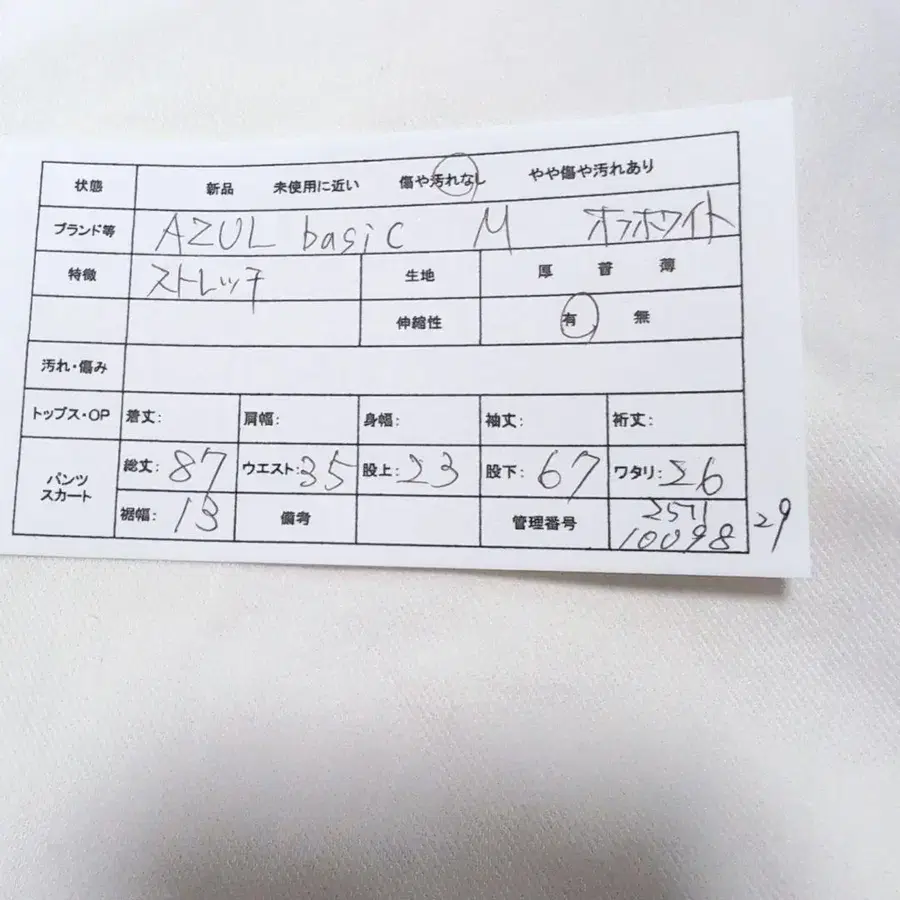 状態 新品 未使用に近い 傷や汚れなし やや傷や汚れあり
ブランド等 AZUL basic M オフホワイト
特徴 ストレッチ 生地 厚 普 薄
伸縮性 有 無
汚れ・傷み
トップス・OP 着丈: 肩幅: 身幅: 袖丈: 裄丈:
パンツ スカート 総丈: 87 ウエスト: 35 股上: 23 股下: 67 ワタリ: 26
裾幅: 13 備考 管理番号 2511
10098 29